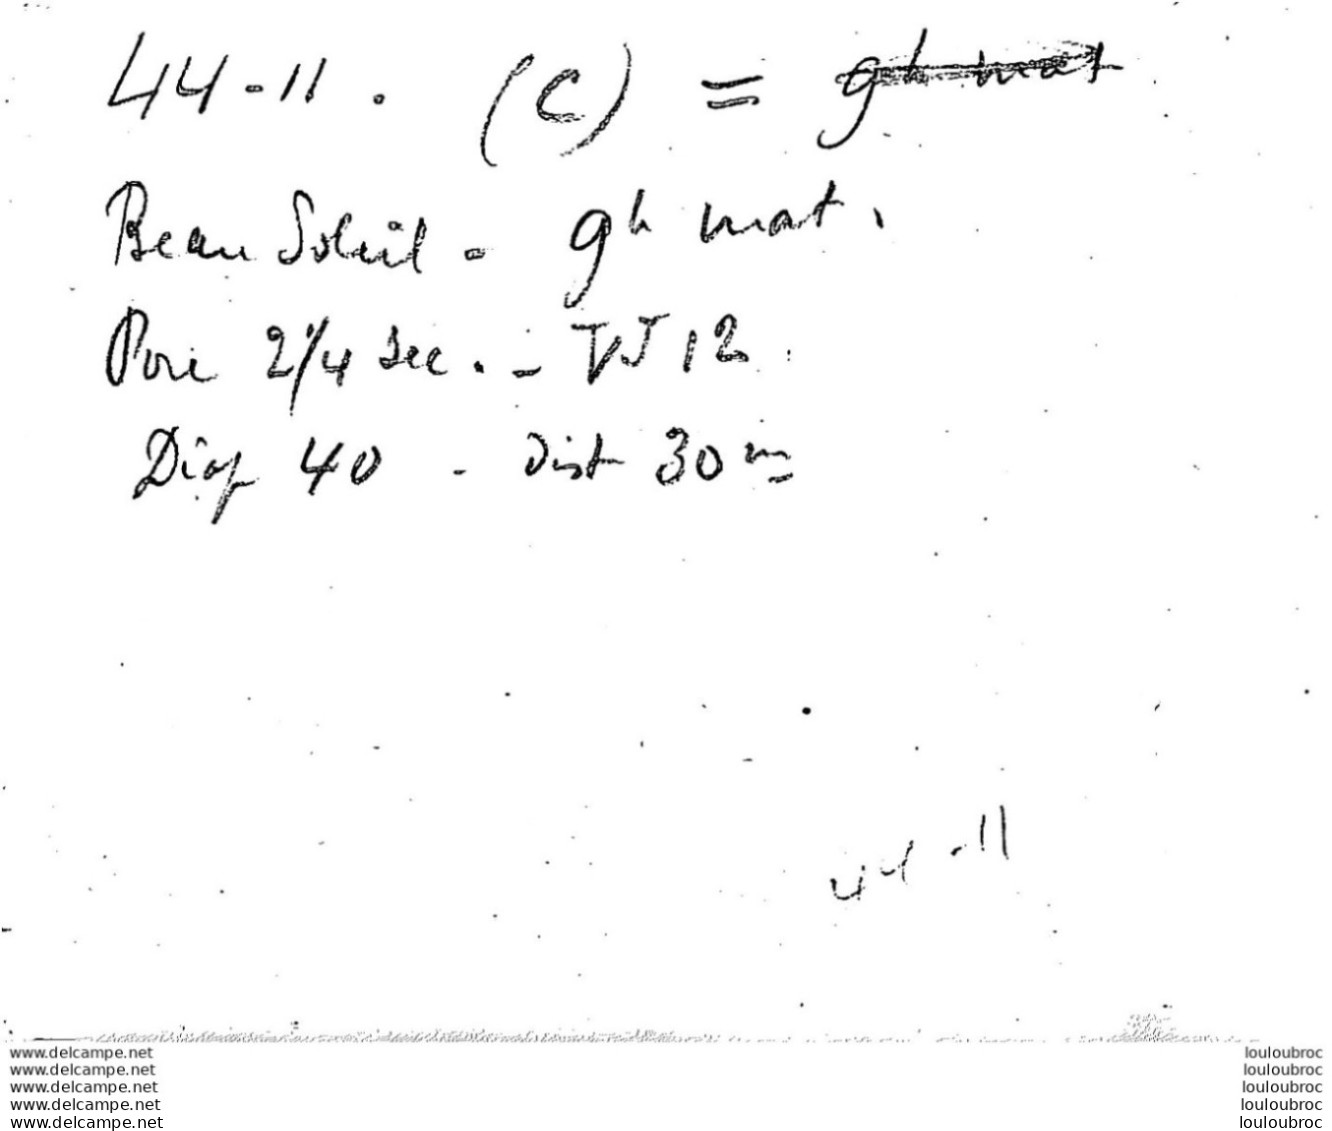 44-11. (C) = 9h mat
Beau Soleil - 9h mat.
Pose 2 1/4 sec. - VJ 12.
Diap 40 - Dist 30 m
44-11
www.delcampe.net louloubroc
www.delcampe.net louloubroc
www.delcampe.net louloubroc
www.delcampe.net louloubroc
www.delcampe.net louloubroc